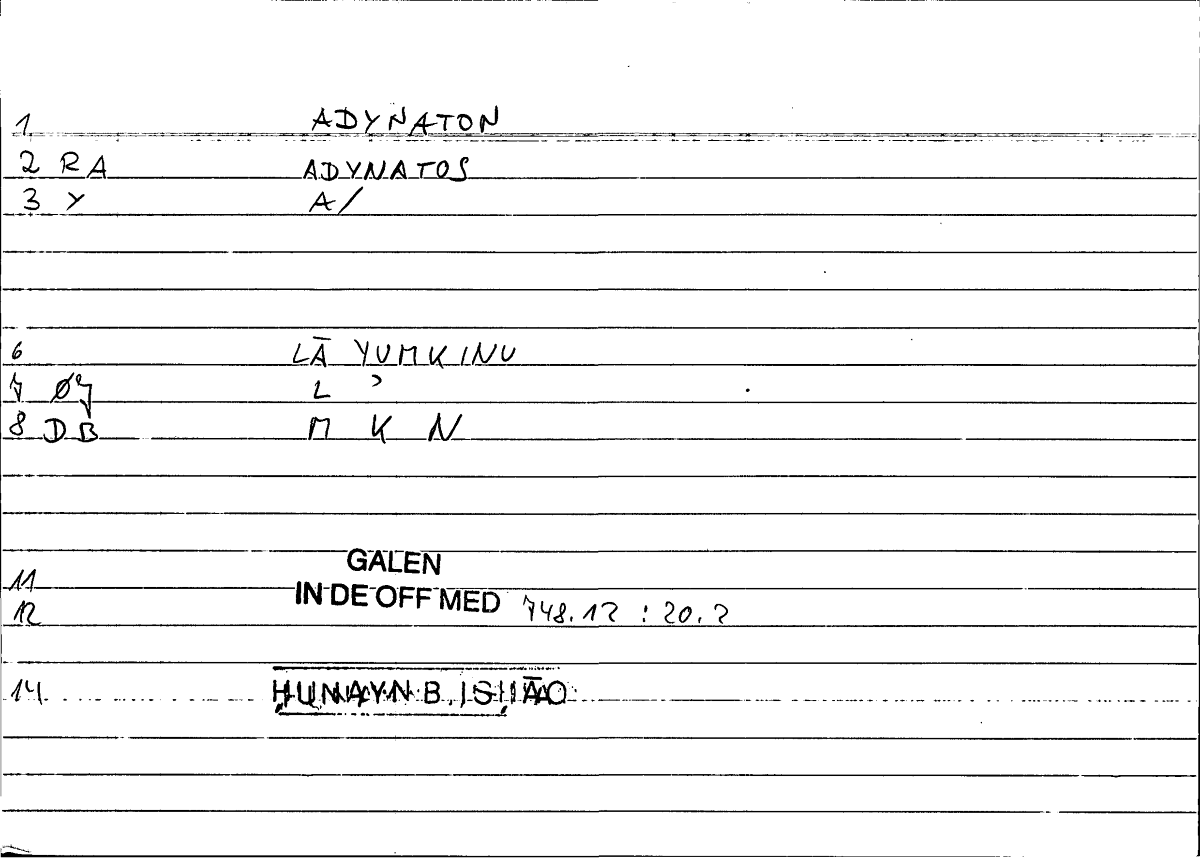 1 ADYNATON
2 RA ADYNATOS
3 Y A/
6 LĀ YUMKINU
7 Ø7 L ʾ
8 DB M K N
11 GALEN
12 IN DE OFF MED 748.12 : 20.2
14 ḤUNAYN B. ISḤĀQ